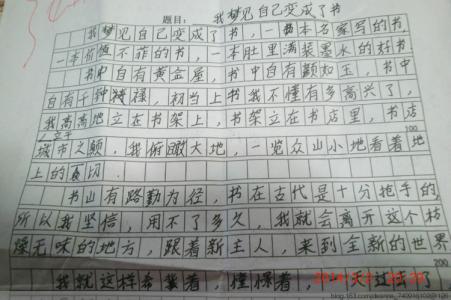 题目：我梦见自己变成了书
我梦见自己变成了书，一本名家写的书，
一本价值不菲的书，一本肚里满装墨水的好书
书中自有黄金屋，书中自有颜如玉，书中
自有千种禄，初当上书我不懂有多高兴了，
我高高地立在书架上，书架立在书店里，书店
立于
100
城市之颠，我俯瞰大地，一览众山小地看着地
上的一切．
书山有路勤为径，书在古代是十分抢手的，
所以我坚信，用不了多久，我就会离开这个枯
燥无味的地方，跟着新主人，来到全新的世界
200
我就这样希冀着，憧憬着，一天过去了